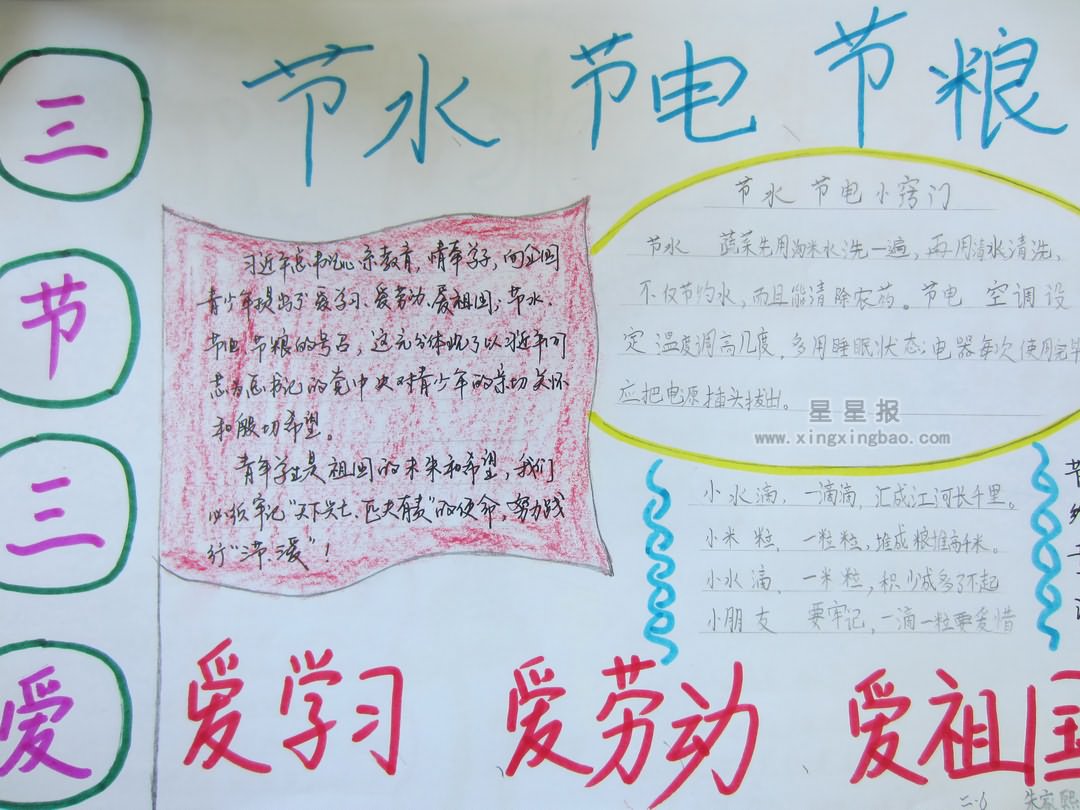 三
节
三
爱
节水 节电 节粮
习近平总书记心系教育,情牵学子,向全国
青少年提出了爱学习、爱劳动、爱祖国;节水、
节电、节粮的号召,这充分体现了以习近平同
志为总书记的党中央对青少年的亲切关怀
和殷切希望。
青年学生是祖国的未来和希望,我们
必须牢记“天下兴亡、匹夫有责”的使命,努力践
行“三节、三爱”!
节水 节电小窍门
节水 蔬菜先用淘米水洗一遍,再用清水清洗,
不仅节约水,而且能清除农药。节电 空调设
定温度调高几度,多用睡眠状态;电器每次使用完毕
应把电原插头拔出。
星星报
www.xingxingbao.com
小水滴,一滴滴,汇成江河长千里。
小米粒,一粒粒,堆成粮堆高千米。
小水滴,一米粒,积少成多了不起
小朋友 要牢记,一滴一粒要爱惜
爱学习 爱劳动 爱祖国
二.6